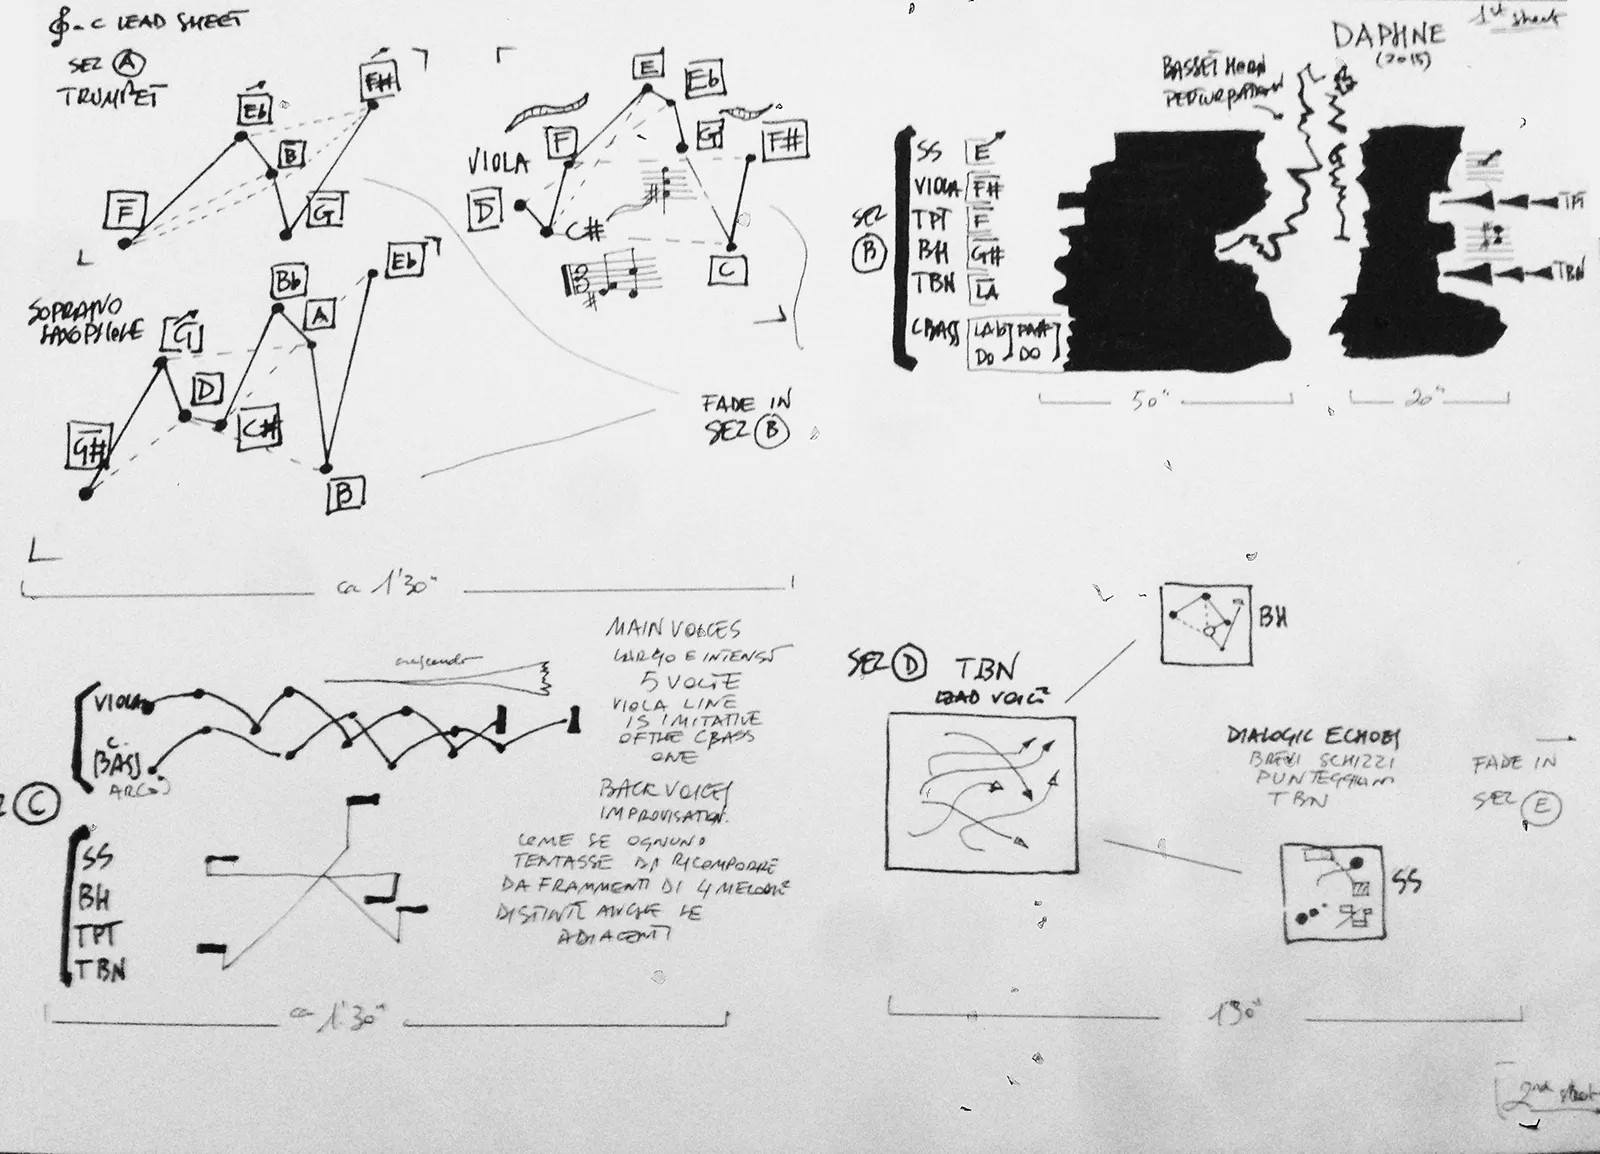 C LEAD SHEET
SEZ A
TRUMPET
F
Eb
B
G
F#
VIOLA
D
C#
F
E
Eb
G
C
F#
SOPRANO
SAXOPHONE
G#
G
D
C#
Bb
A
B
Eb
FADE IN
SEZ B
ca 1'30"
1st sheet
DAPHNE
(2015)
BASSET HORN
PERTURBATION
SEZ
B
SS E
VIOLA F#
TPT F
BH G#
TBN LA
CBASS LAb FA#
DO DO
TPT
TBN
50"
20"
C
VIOLA
C.
BASS
ARCO
crescendo
MAIN VOICES
LARGO E INTENSO
5 VOLTE
VIOLA LINE
IS IMITATIVE
OF THE CBASS
ONE
SS
BH
TPT
TBN
BACK VOICES
IMPROVISATION.
COME SE OGNUNO
TENTASSE DI RICOMPORRE
DA FRAMMENTI DI 4 MELODIE
DISTINTE ANCHE SE
ADIACENTI
ca 1'30"
SEZ D TBN
LEAD VOICE
BH
SS
DIALOGIC ECHOES
BREVI SCHIZZI
PUNTEGGIANO
TBN
FADE IN
SEZ E
1'30"
2nd sheet